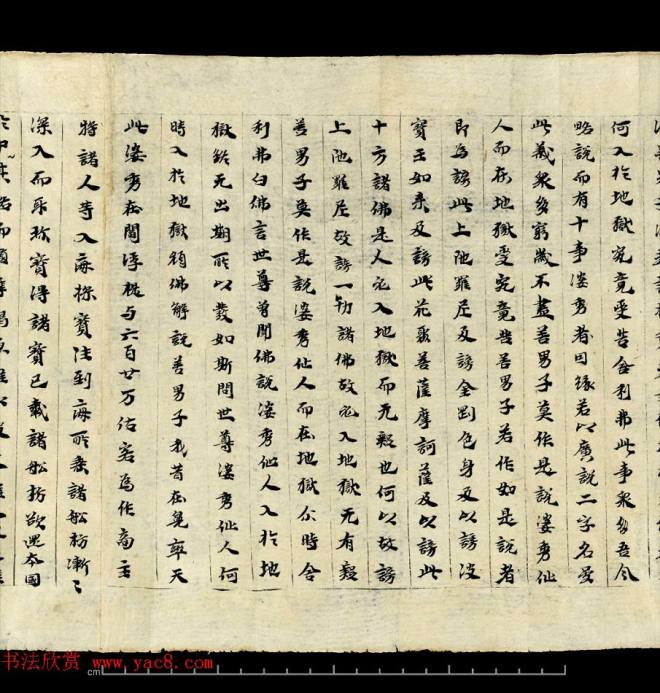 何入於地獄究竟受苦舍利弗此事衆多吾今
略說而有十事婆藪者因緣若以廣說二字名
此義衆多窮歲不盡善男子莫作是說婆藪仙
人而在地獄受究竟苦善男子若作如是說者
即為謗此上陁羅尼及謗金剛色身及以謗彼
寶王如来及謗此花聚菩薩摩訶薩及以謗此
十方諸佛是人必入地獄而无疑也何以故謗
上陁羅尼故謗一切諸佛故必入地獄无有疑
善男子莫作是說婆藪仙人而在地獄尒時舍
利弗白佛言世尊曾聞佛說婆藪仙人入於地
獄終无出期所以發如斯問世尊婆藪仙人何
時入於地獄得佛解說善男子我昔在兜率天
此婆藪在閻浮提与六百廿万估客為作商主
將諸人等入海採寶往到海所乘諸舩舫漸〻
深入而取珎寶得諸寶已載諸舩舫欲還本國
书法欣赏 www.yac8.com
cm